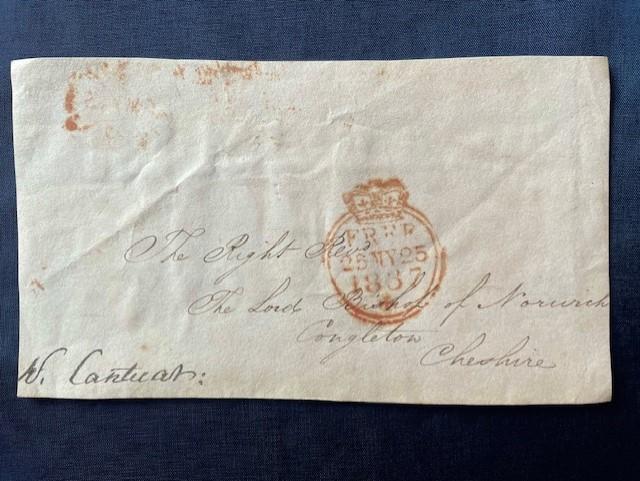 FREE
25 MY 25
1837
The Right Revd
The Lord Bishop of Norwich
Congleton
Cheshire
W. Cantuar: